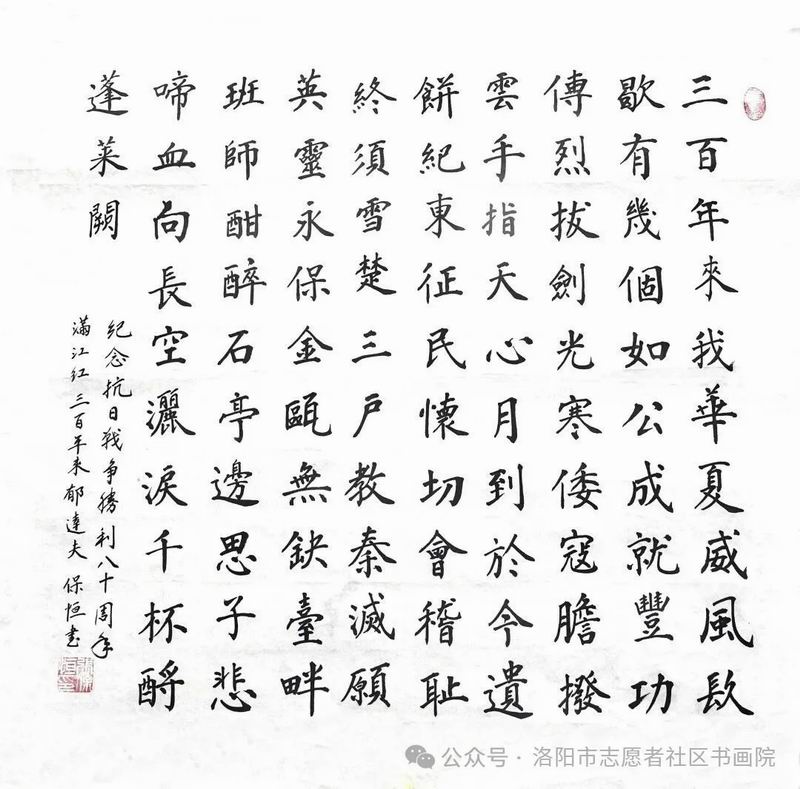 三百年來我華夏威風
歇有幾個如公成就豐功
傳烈拔劍光寒倭寇膽撥
雲手指天心月到於今遺
餅紀東征民懷切會稽耻
終須雪楚三戶教秦滅願
英靈永保金甌無缺臺畔
班師酣醉石亭邊思子悲
啼血向長空灑淚千杯酹
蓬萊闕
纪念抗日战争勝利八十周年
满江红三百年来郁達夫 保恒书
公众号·洛阳市志愿者社区书画院